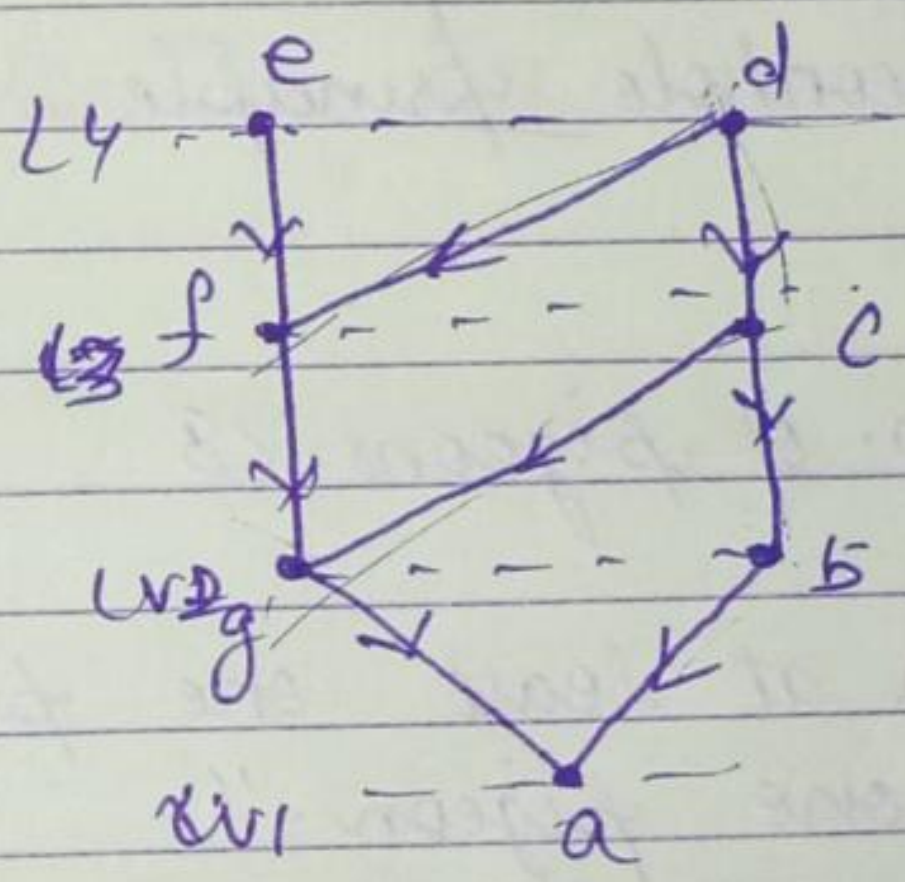 e d
L4
L3 f c
LV2 g b
LV1
a